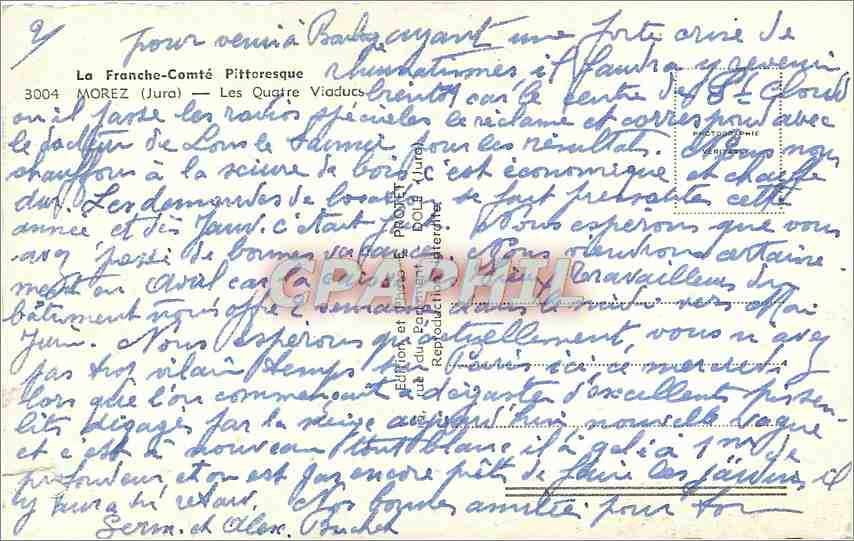 2/
pour venir à ayant une forte crise de
La Franche-Comté Pittoresque
rhumatismes il faudra y revenir
3004 MOREZ (Jura) — Les Quatre Viaducs
bientôt car le centre de St Cloud
où il passe les radios spéciales le réclame et correspond avec
le docteur de Lons le Saunier pour les résultats. Nous nous
PHOTOGRAPHIE
VÉRITABLE
chauffons à la sciure de bois, c'est économique et chauffe
dur. Les demandes de se font pressantes cette
année et dès Janv. c'était Nous espérons que vous
avez passé de bonnes vacances. Nous viendrons certaine
ment en Avril car la travailleurs du
bâtiment nous offre 2 semaines dans le midi vers Mai
Juin. Nous espérons qu'actuellement, vous n'avez
pas trop vilain temps, ici ce mercredi
lors que l'on commençait à déguster d'excellents pissen-
lits dégagés par la neige aujourd'hui nouvelle vague
et c'est à nouveau tout blanc il a gelé à 1 m de
profondeur et on est pas encore prêts de faire les jardins, il
y aura du retard. Nos bonnes amitiés pour
Germ. et Alex. Buchet
Edition et E. PROTET
rue du Parlement DOLE (Jura)
Reproduction interdite
CPARPHIL